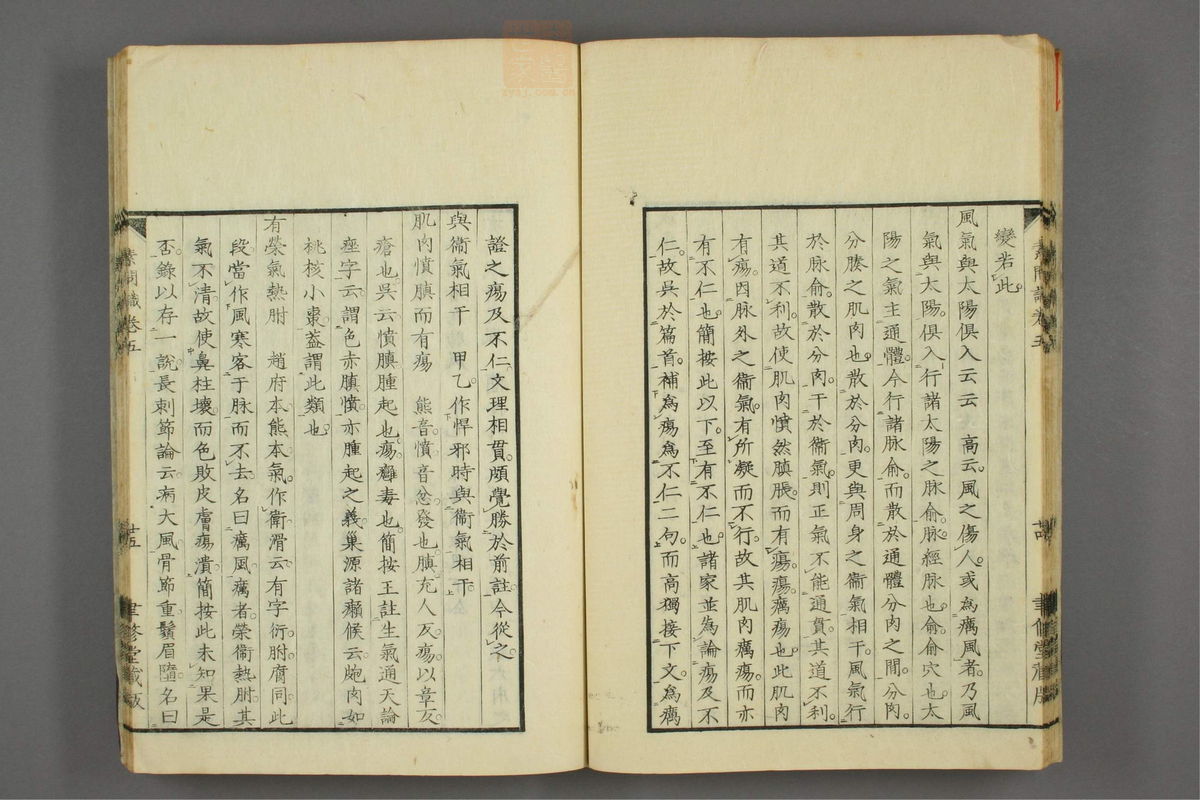 變若此
風氣與太陽俱入云云 高云風之傷人或為癘風者乃風
氣與太陽俱入行諸太陽之脉俞脉經脉也俞俞穴也太
陽之氣主通體今行諸脉俞而散於通體分肉之間分肉
分腠之肌肉也散於分肉更與周身之衞氣相干風氣行
於脉俞散於分肉干於衞氣則正氣不能通貫其道不利
其道不利故使肌肉憤然䐜脹而有瘍瘍癘瘍也此肌肉
有瘍因脉外之衞氣有所凝而不行故其肌肉癘瘍而亦
有不仁也簡按此以下至有不仁也諸家並為論瘍及不
仁故吳於篇首補為瘍為不仁二句而高獨接下文為癘
證之瘍及不仁文理相貫頗覺勝於前註今從之
與衞氣相干 甲乙作悍邪時與衞氣相干
肌肉憤䐜而有瘍 熊音憤音忿發也䐜充人反瘍以章反
瘡也吳云憤䐜腫起也瘍癰毒也簡按王註生氣通天論
痤字云謂色赤䐜憤亦腫起之義巢源諸癩候云皰肉如
桃核小棗蓋謂此類也
有榮氣熱胕 趙府本熊本氣作衛滑云有字衍胕腐同此
段當作風寒客于脉而不去名曰癘風癘者榮衞熱胕其
氣不清故使鼻柱壞而色敗皮膚瘍潰簡按此未知果是
否錄以存一說長刺節論云病大風骨節重鬚眉墮名曰
素問識卷五
廿四
聿修堂藏版
素問識卷五
廿五
聿修堂藏版